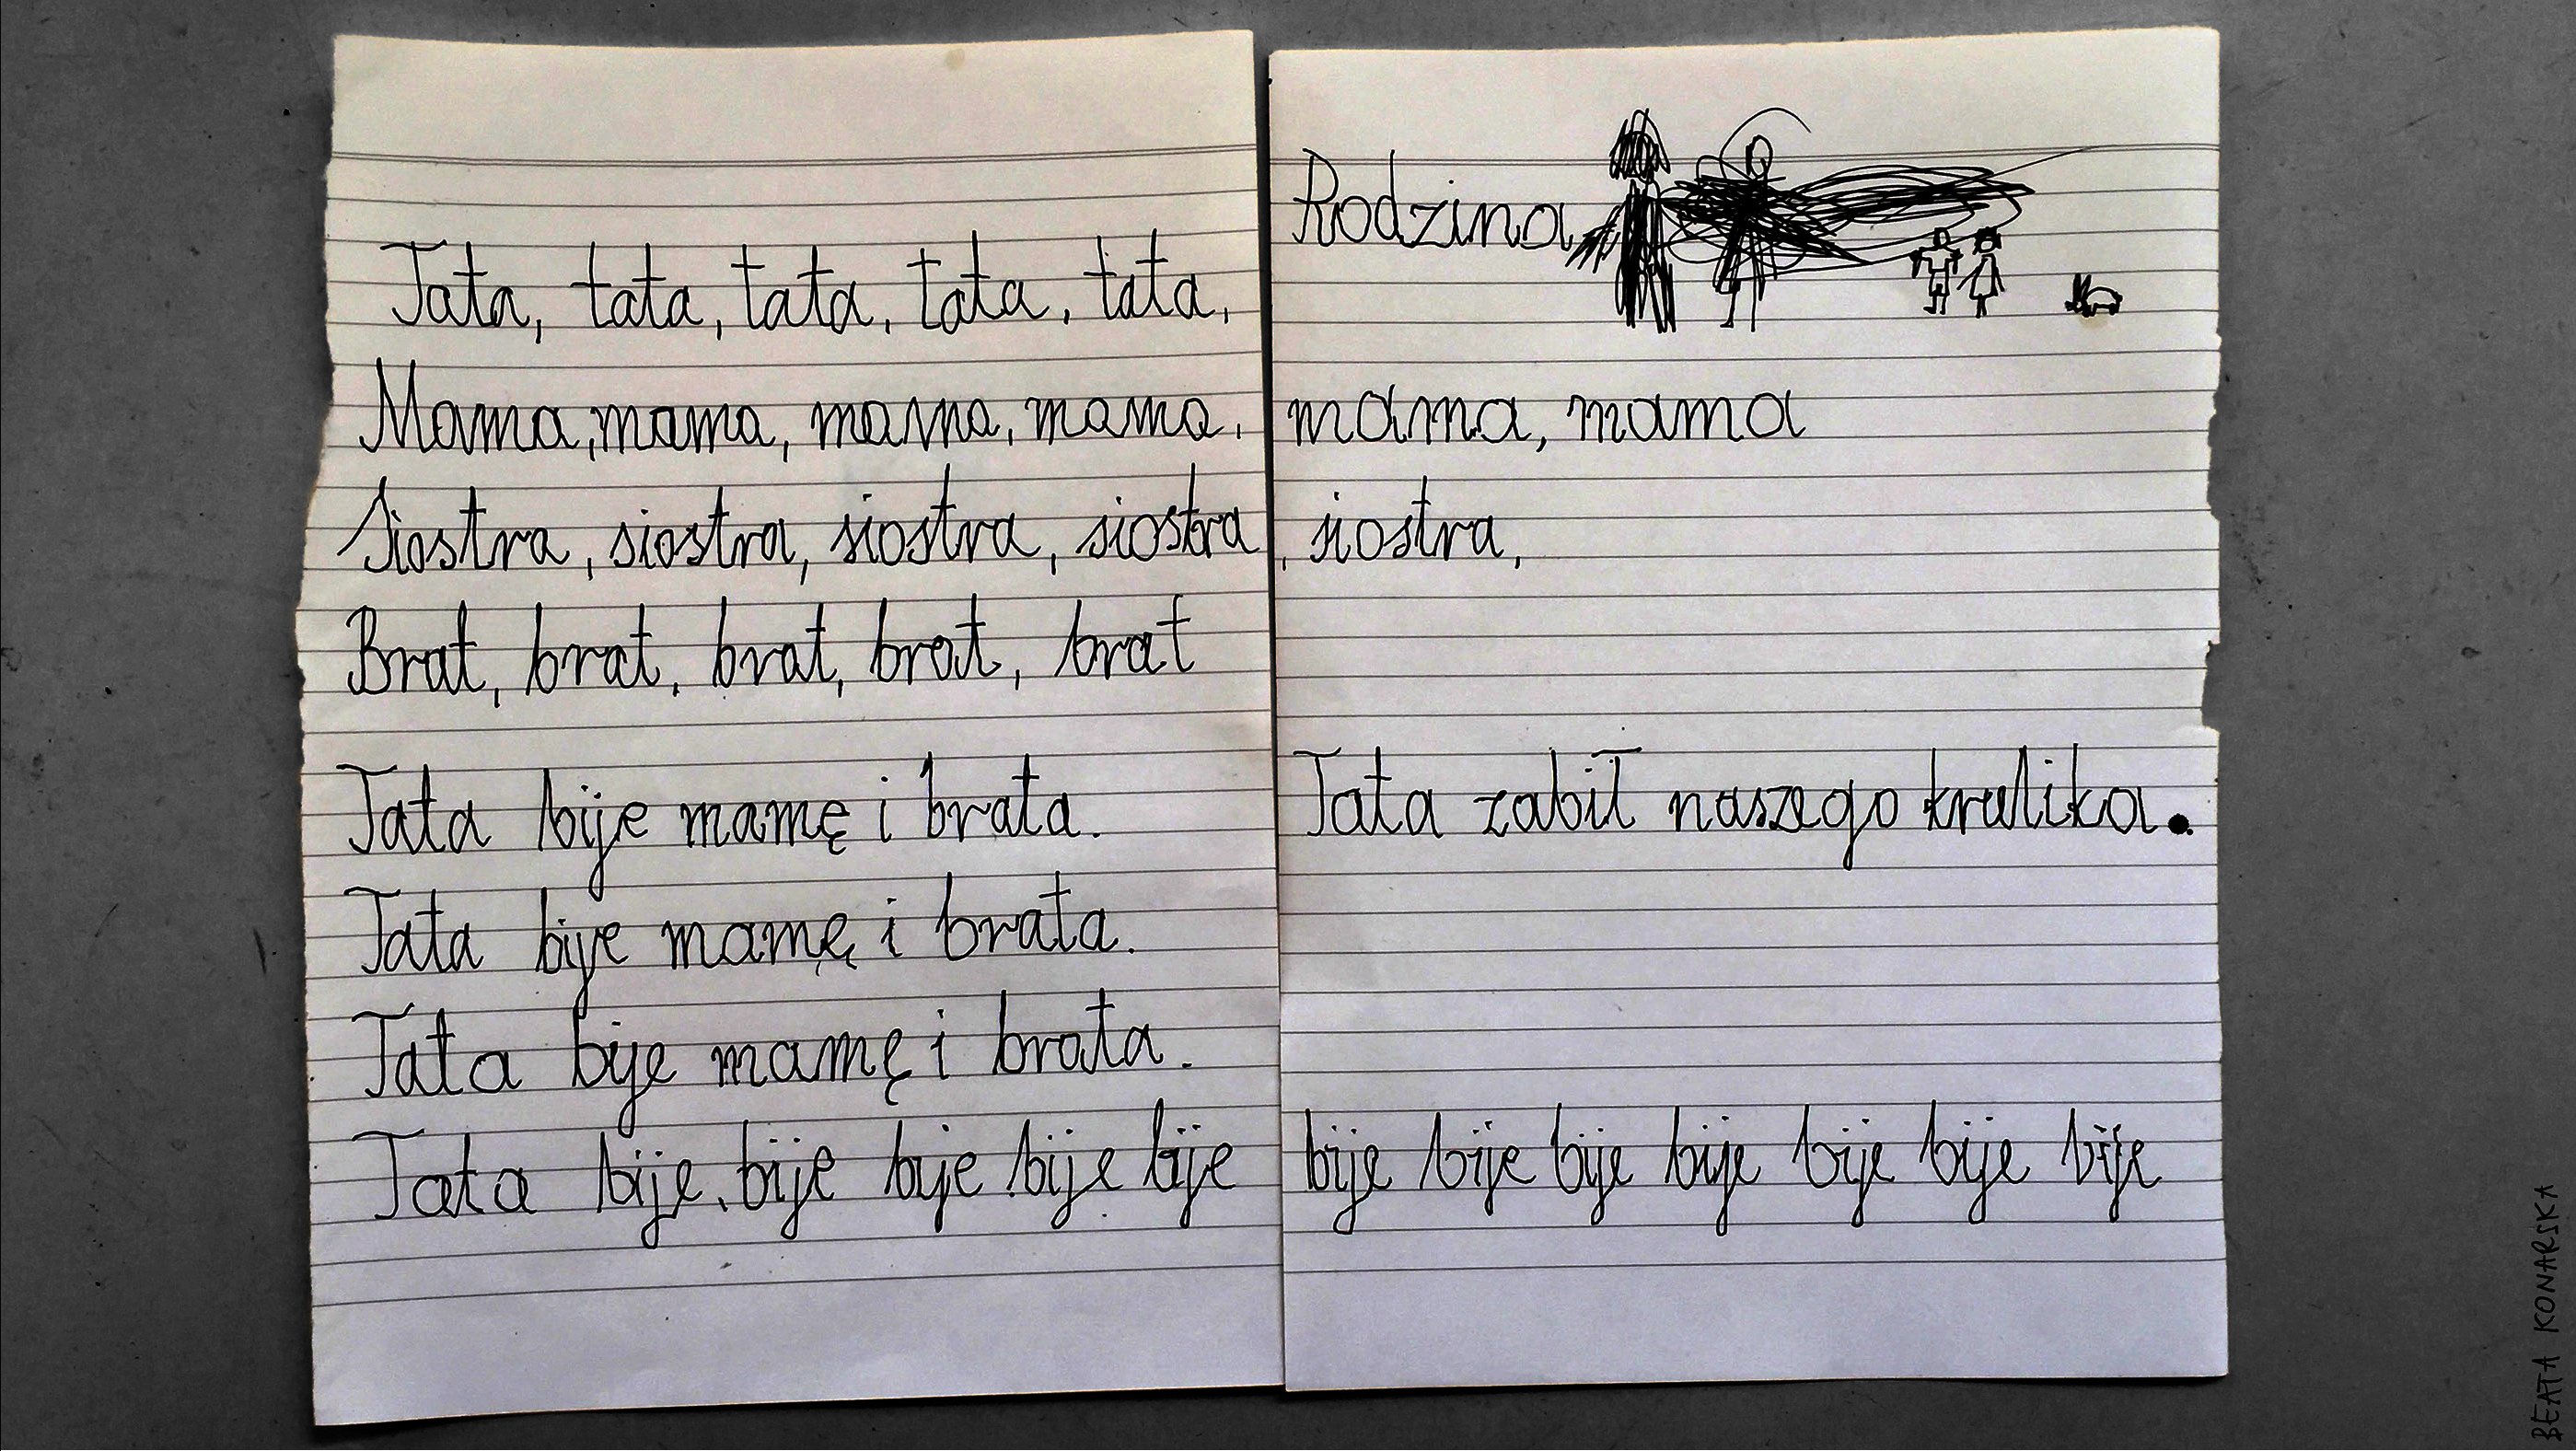 Tata, tata, tata, tata, tata,
Mama, mama, mama, mama,
Siostra, siostra, siostra, siostra
Brat, brat, brat, brat, brat
Tata bije mamę i brata.
Tata bije mamę i brata.
Tata bije mamę i brata.
Tata bije, bije bije bije bije
Rodzina
mama, mama
, siostra,
Tata zabił naszego krulika.
bije bije bije bije bije bije bije
BEATA KONARSKA